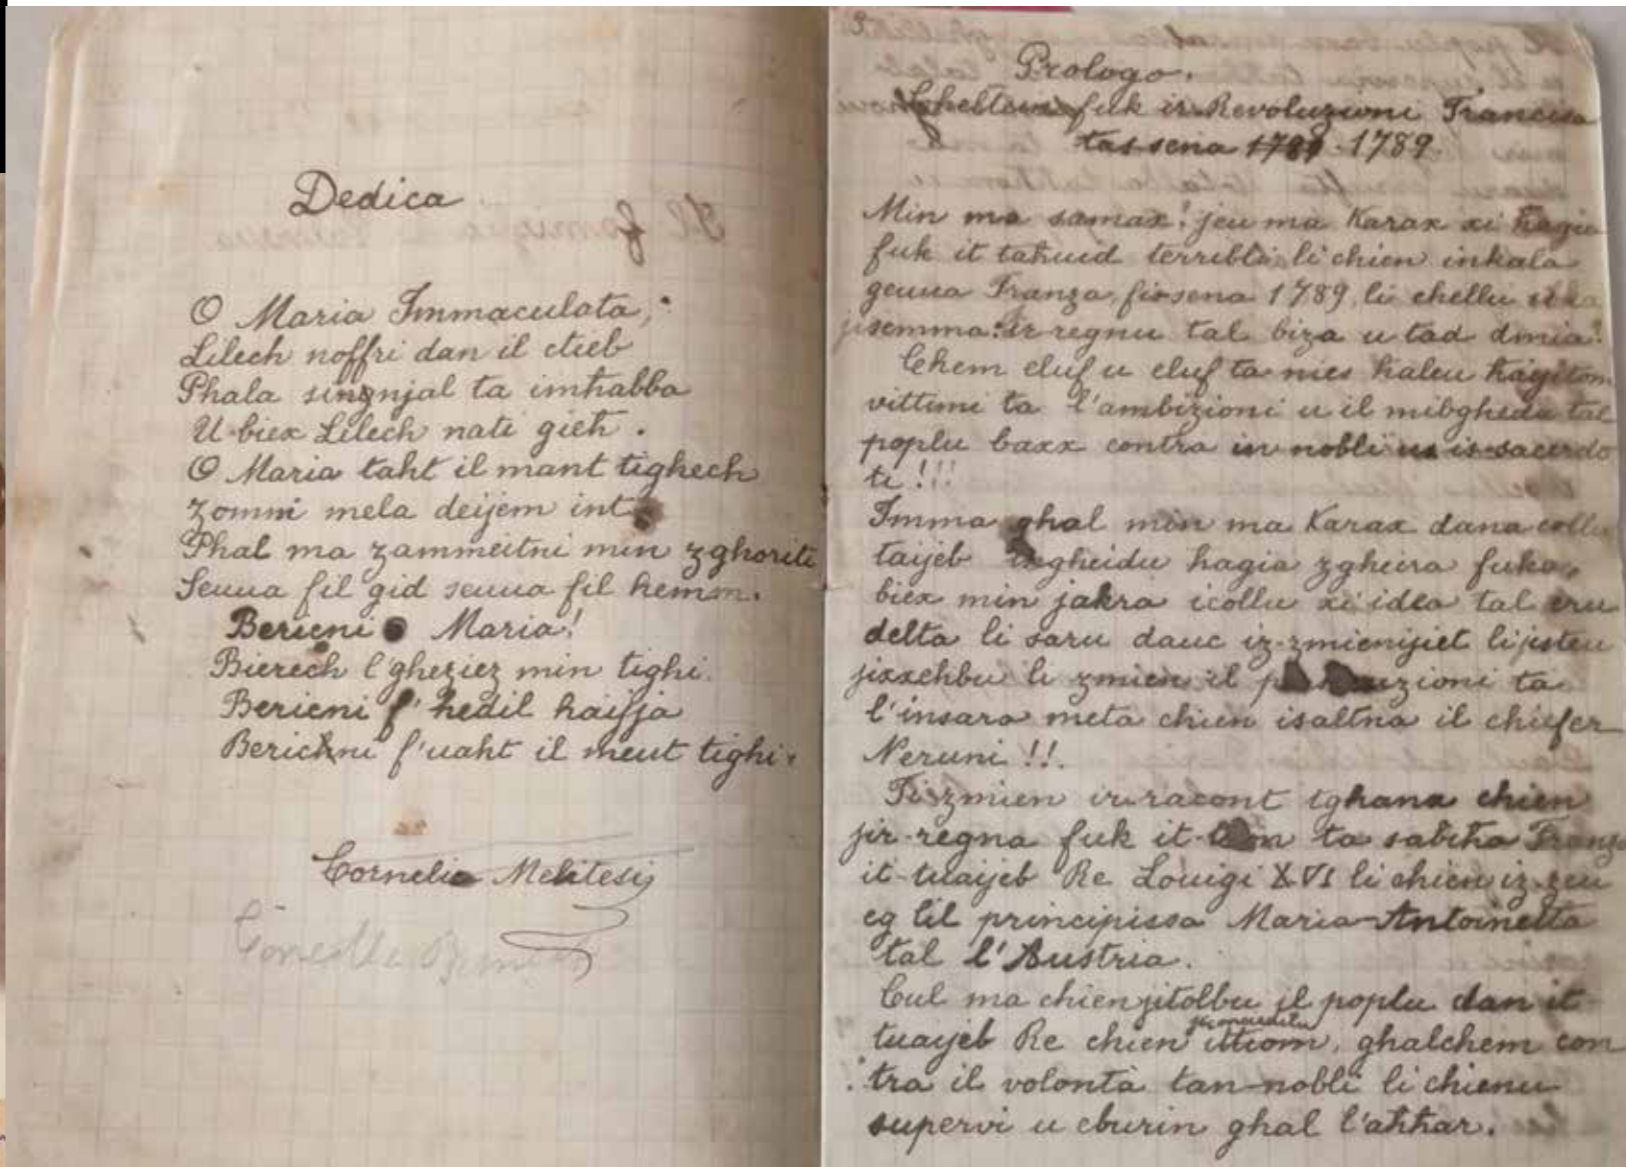 Dedica
O Maria Immaculata,
Lilech noffri dan il ctieb
Ghala singnjal ta imhabba
U biex Lilech nati gieh.
O Maria taht il mant tighech
zomni mela deijem int
Ghal ma zammeitni min zghoriti
Seuua fil gid seuua fil hemm.
Bericni o Maria!
Bierech l'gheziez min tighi
Bericni f'hedil haijja
Berichni f'uaht il meut tighi.
Cornelia Melitesi
Prologo.
fuk ir-Revoluzioni Francisa
tas sena 1789 - 1789.
Min ma samax! jeu ma Karax xi hagia
fuk it tahuid terribli li chien inkala
geuua Franza, fis sena 1789, li chellu
jissemma: ir-regnu tal biza u tad dmia!
Chem eluf u eluf ta nies haleu hagithom
vittimi ta l'ambizioni u il mibgheda tal
poplu baxx contra in nobli u is-sacerdo
ti!!!
Imma ghal min ma Karax dana collu
taijeb ingheidu hagia zgheira fuka,
biex min jakra icollu xi idea tal cru
delta li saru dauc iz-zmienijiet li jisteu
jixxchbu li zmien il
l'insara meta chien isaltna il chiefer
Neruni!!.
Fi zmien ir-racont tghana chien
jir-regna fuk it-tron ta sabiha Franza
it-tuaijeb Re Louigi XVI li chien iz-zeu
eg lil principissa Maria-Antoinetta
tal l'Austria.
Cul ma chien jitolbu il poplu dan it
tuaijeb Re chien ittiom, ghalchem con
tra il volontà tan-nobli li chienu
supervi u cburin ghal l'ahhar.